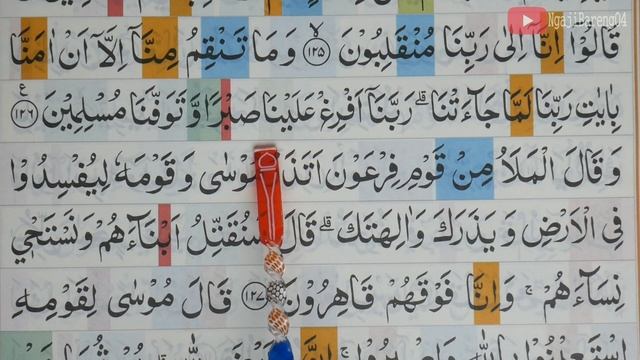 NgajiBareng04
قَالُوْٓا اِنَّآ اِلٰى رَبِّنَا مُنْقَلِبُوْنَ ۙ ١٢٥ وَمَا تَنْقِمُ مِنَّآ اِلَّآ اَنْ اٰمَنَّا
بِاٰيٰتِ رَبِّنَا لَمَّا جَاۤءَتْنَا ۗ رَبَّنَآ اَفْرِغْ عَلَيْنَا صَبْرًا وَّتَوَفَّنَا مُسْلِمِيْنَ ࣖ ١٢٦
وَقَالَ الْمَلَاُ مِنْ قَوْمِ فِرْعَوْنَ اَتَذَرُ مُوْسٰى وَقَوْمَهٗ لِيُفْسِدُوْا
فِى الْاَرْضِ وَيَذَرَكَ وَاٰلِهَتَكَ ۗ قَالَ سَنُقَتِّلُ اَبْنَاۤءَهُمْ وَنَسْتَحْيٖ
نِسَاۤءَهُمْ ۚ وَاِنَّا فَوْقَهُمْ قَاهِرُوْنَ ١٢٧ قَالَ مُوْسٰى لِقَوْمِهِ